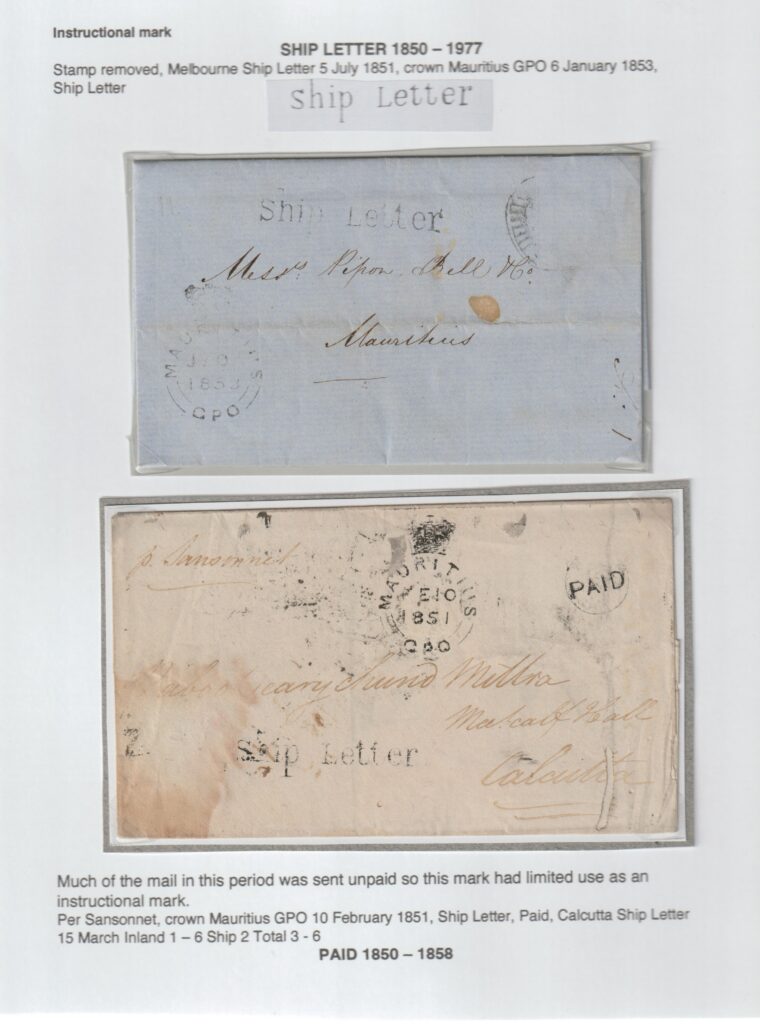 Instructional mark
SHIP LETTER 1850 – 1977
Stamp removed, Melbourne Ship Letter 5 July 1851, crown Mauritius GPO 6 January 1853,
Ship Letter
Ship Letter
Ship Letter
Messrs Pipon Bell & Co
Mauritius
MAURITIUS
1853
GPO
p. Sansonnet
MAURITIUS
FE10
1851
GPO
PAID
Mittra
Metcalf Hall
Ship Letter
Calcutta
Much of the mail in this period was sent unpaid so this mark had limited use as an
instructional mark.
Per Sansonnet, crown Mauritius GPO 10 February 1851, Ship Letter, Paid, Calcutta Ship Letter
15 March Inland 1 – 6 Ship 2 Total 3 - 6
PAID 1850 – 1858